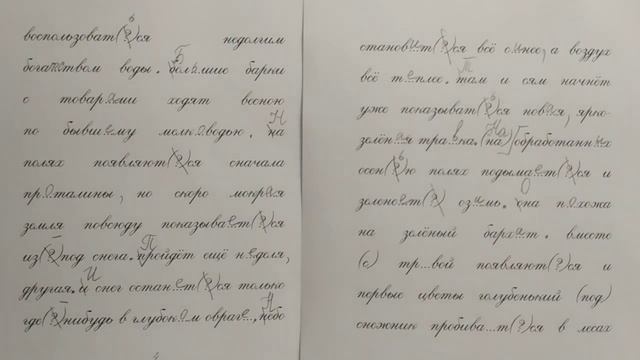 воспользоват(ь?)ся недолгим
богатством воды. Большие барки
с товарами ходят весною
по бывшему мелководью. На
полях появляют(?)ся сначала
проталины, но скоро мокрая
земля повсюду показывает(?)ся
из(?)под снега. Пройдёт ещё неделя,
другая. И снег останет(?)ся только
где(?)нибудь в глубоком овраге..., Небо
становит(?)ся всё синее, а воздух
всё теплее. Там и сям начнёт
уже показыват(ь?)ся новая, ярко-
зелёная травка. (На)обработанных
осен(ь?)ю полях подымает(?)ся и
зеленеет(?) озимь. Она похожа
на зелёный бархат. вместе
(с) тр...вой появляют(?)ся и
первые цветы голубенький (под)
снежник пробива...т(?)ся в лесах